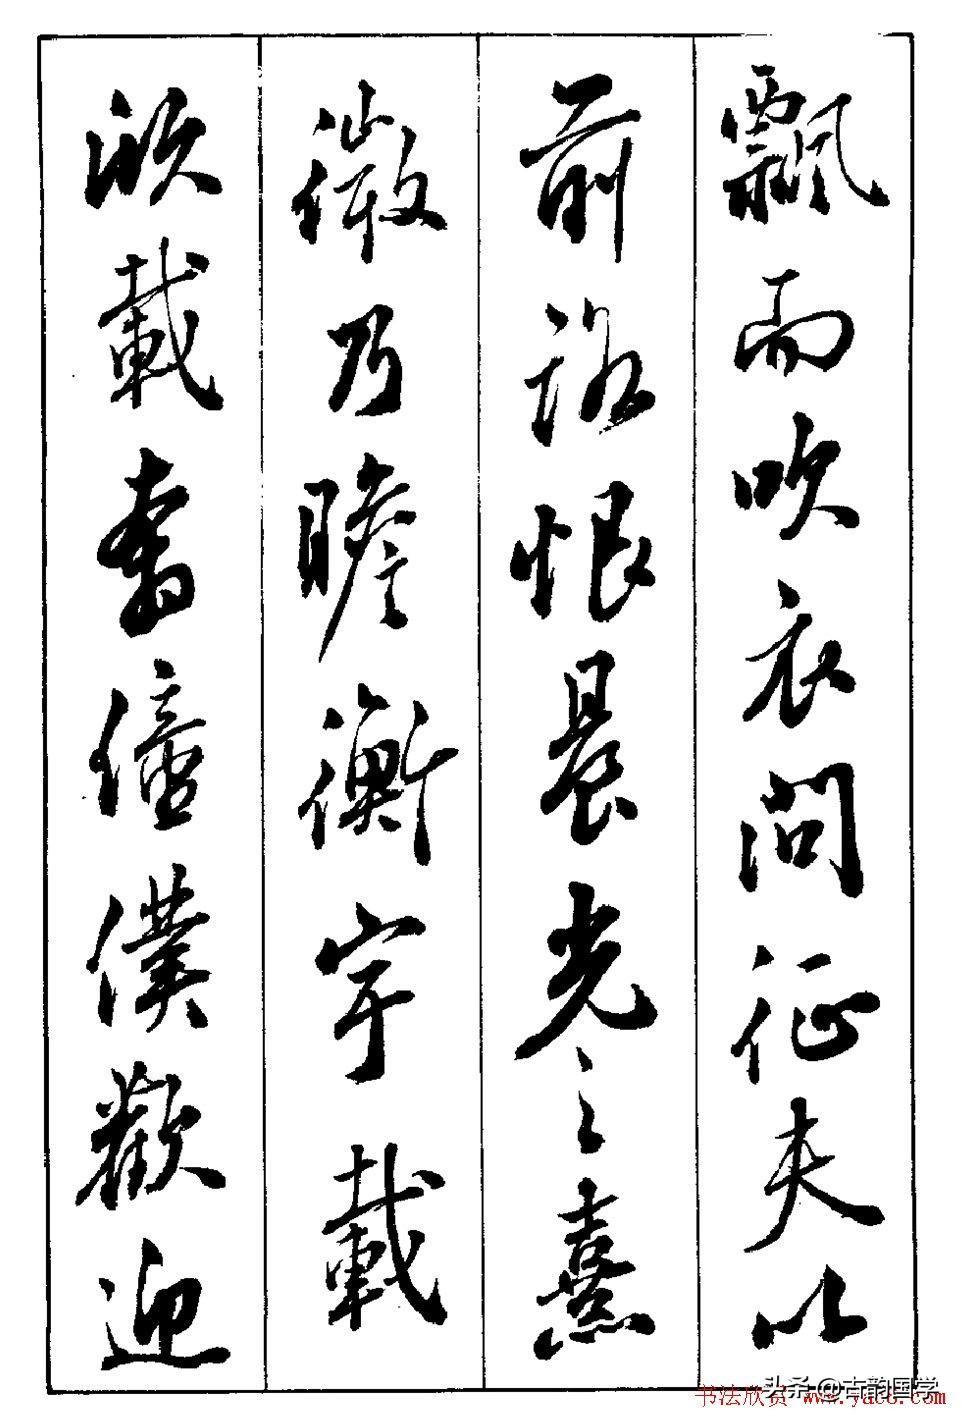 飄而吹衣問征夫以
前路恨晨光之熹
微乃瞻衡宇載
欣載奔僮僕歡迎
头条 @古韵国学
书法欣赏 www.yac8.com